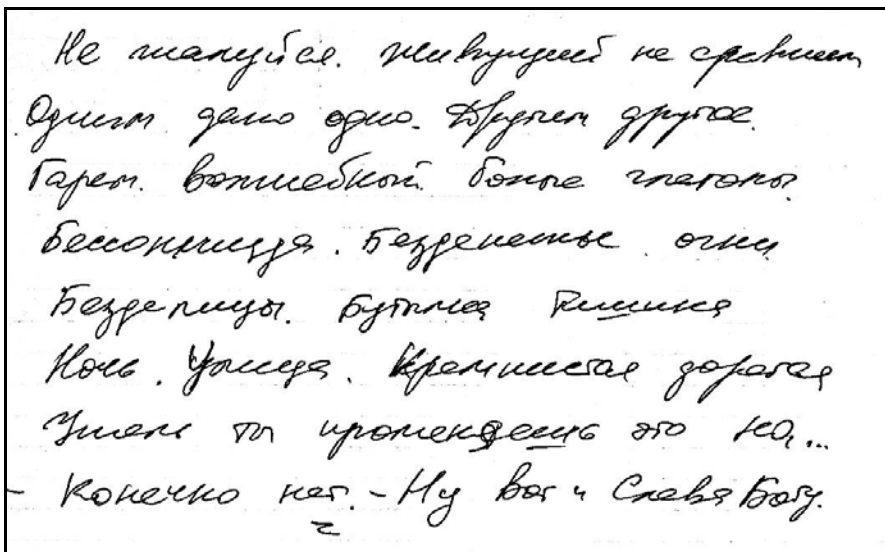 Не жалуйся. Живущий не сравним
Одним дано одно. Другим другое.
Гарем. волшебный. божьи глаголы.
Бессонница. Безденежье. огни
Безделицы. Бутылка Тишина
Ночь. Улица. Кремнистая дорогая
Ужель ты променяешь это на...
- Конечно нет. - Ну вот и Слава Богу.